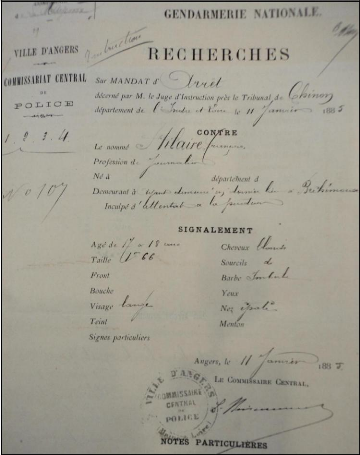 GENDARMERIE NATIONALE.
VILLE D'ANGERS
RECHERCHES
COMMISSARIAT CENTRAL
DE
POLICE
Sur MANDAT d'Arrêt
décerné par M. le Juge d'Instruction près le Tribunal de Chinon
département de l'Indre et Loire le 11 Janvier 1885
1, 2, 3, 4
CONTRE
Le nommé Hilaire
Profession de Journalier
No 107
Né à département d
Demeurant à
Inculpé d'attentat à la pudeur
SIGNALEMENT
Agé de 17 à 18 ans Cheveux blonds
Taille 1m 66 Sourcils d
Front Barbe
Bouche Yeux
Visage large Nez
Teint Menton
Signes particuliers
Angers, le 11 Janvier 1885
LE COMMISSAIRE CENTRAL,
VILLE D'ANGERS
COMMISSAIRE
CENTRAL
DE
POLICE
NOTES PARTICULIÈRES